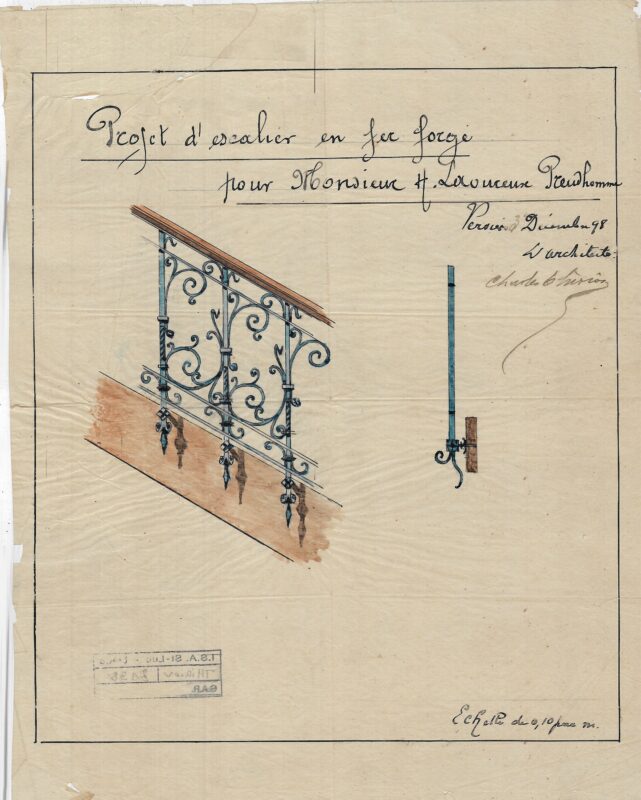 Projet d'escalier en fer forgé
pour Monsieur H. Laoureux Preudhomme
Décembre 98
L'architecte:
Charles Thirion
I.S.A. St-Luc
Echelle de 0,10 pour m.